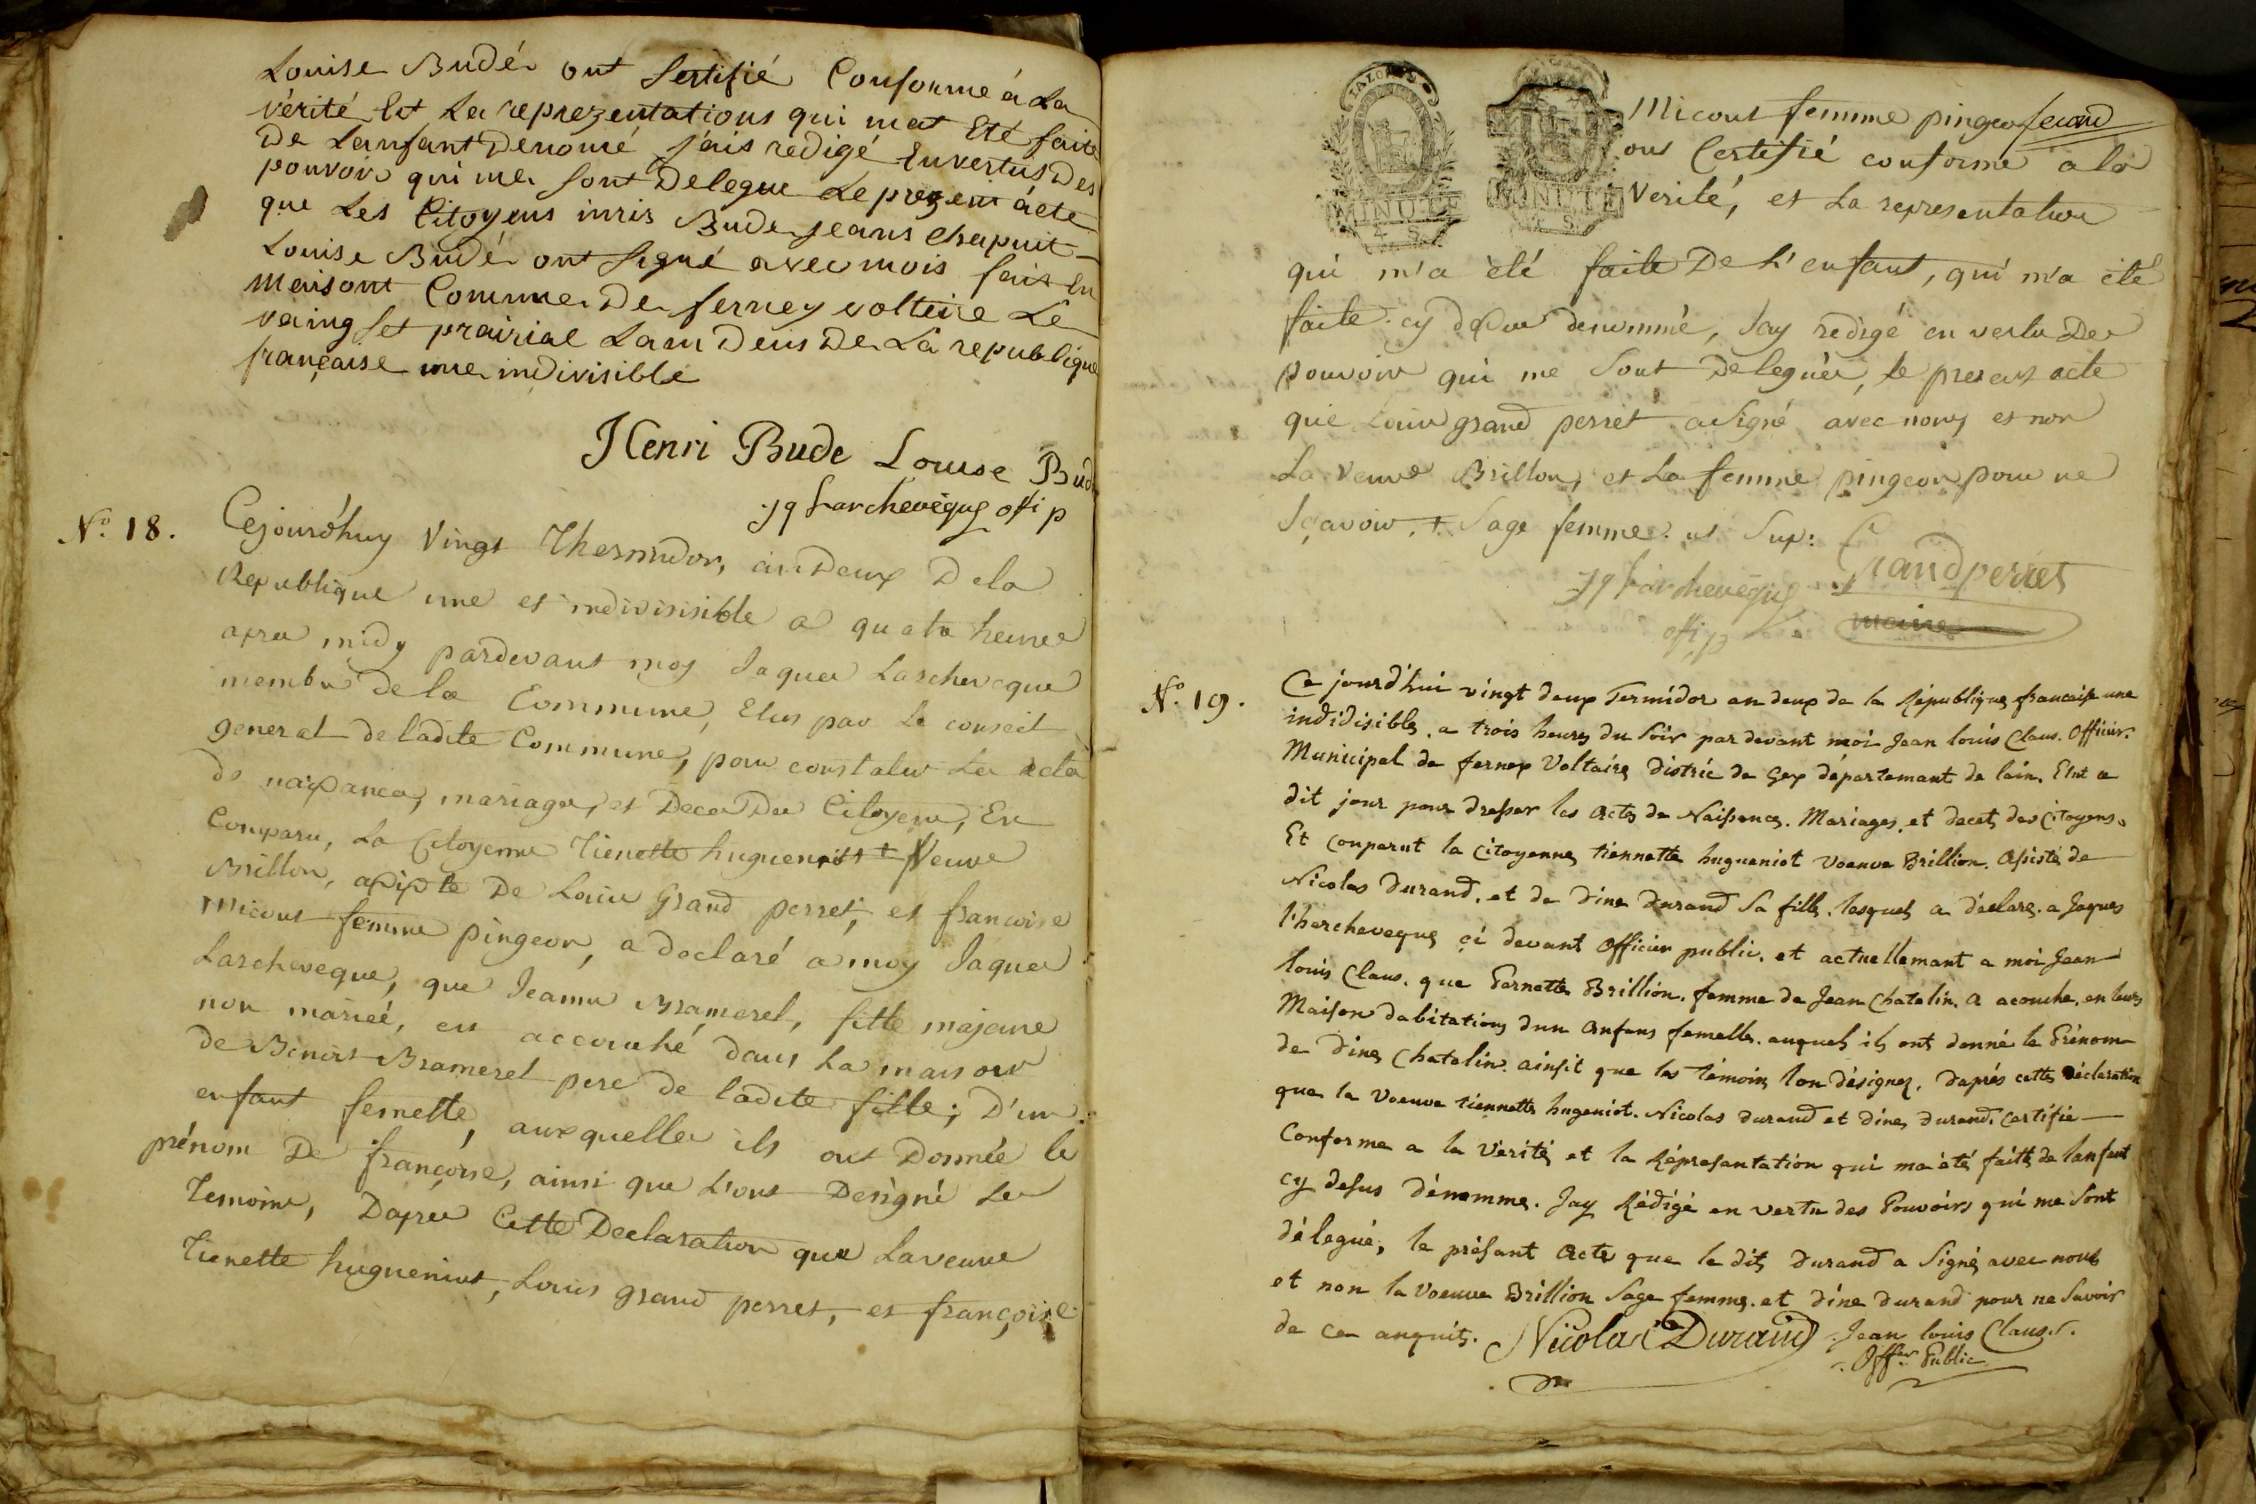 Louise Budé ont sertifié Conforme á La
vérité Et La reprezentations qui mat Eté faite
De Lanfant Denomé jáis rédigé Envertus Des
pouvoir qui me sont Delegue Le prezent acte
que Les Citoyens inris Bude jeans Chapuit
Louise Budé ont signé avec mois fais En
maisont Commune De ferney volteire Le
veing set prairial Lam Deus De La republique
française une indivisible
Henri Bude Louise Bude
jq Larcheveque offi p
N.º 18.
Cejourd'huy Vingt Thermidor, an Deux De la
Republique une et indivisisible a quatre heures
apres midy pardevant moy Jaques Larcheveque
membre De la Commune, Elus par le conseil
general de ladite Commune, pour constater Les acte
de naissances, mariages, et Deces Des Citoyens, En
Comparu, La Citoyenne Tienette hugueniot + Veuve
Brillon, assiste De Louis Grand perret, et francoise
Micout femme pingeon, a declaré a moy Jaques
Larcheveque, que Jeanne Brameret, fille majeure
non mariée, est accouché dans La maison
de Benoit Brameret pere de ladite fille; D'un
enfant femelle, auxquelles ils ont Donnée le
prénom De françoise, ainsi que L'ont Designé Les
Temoins, Dapres Cette Declaration que La veuve
Tienette huguenius, Louis grand perret, et françoise
MINUTE
4. S.
MINUTE
4. S.
Micout femme pingeon
ont Certifié conforme a la
Verité, et La representation
qui m'a été faite De L'enfant, qui m'a été
faite cy dessus denommé, Jay redigé en vertu Des
pouvoir qui me Sont Delegués, le present acte
que Louis grand perret a Signé avec nous et non
La Veuve Brillon, et La femme pingeon pour ne
Sçavoir. + Sage femme. ut Sup:
Grandperret
jq Larcheveque
maire
offi p
N.º 19.
Ce jourd'hui vingt deux Termidor an deux de la République francaise une
indidisible, a trois heures du Soir par devant moi Jean louis Claus. Officier.
Municipal de fernex Voltaire distric de Gex département de lain. Elut a
dit jour pour dresser les actes de Naissances. Mariages, et decet, des Citoyens.
Et conparut la Citoyenne tiennette hugueniot voeuve Brillion. Assisté de
Nicolas durand, et de dine durand Sa fille. lesquels a declare, a Jaques
l'harcheveque çi devant Officier public, et actuellemant a moi Jean
louis Claus. que Pernette Brillion. famme de Jean Chatelin, a acouche, en leurs
Maison dabitations dun anfans femelle. auquels ils ont donné le Prénom
de Dine Chatelin. ainsit que les témoins lon désignez, daprés cette Déclaration
que la Voeuve tiennette hugeniot. Nicolas durand et dine, durand, Certifie
Conforme a la Vérité, et la Répresantation qui ma été faitte de lanfant
cy desus dénomme. Jay Rédigé en vertu des Pouvoirs qui me Sont
délegué, le présant Acte que le dit, durand a Signé, avec nous
et non la Voeuve Brillion Sage femme. et dine durand pour ne Savoir
de ce anquits. Nicolas Durand Jean louis Claus.
Offer Public